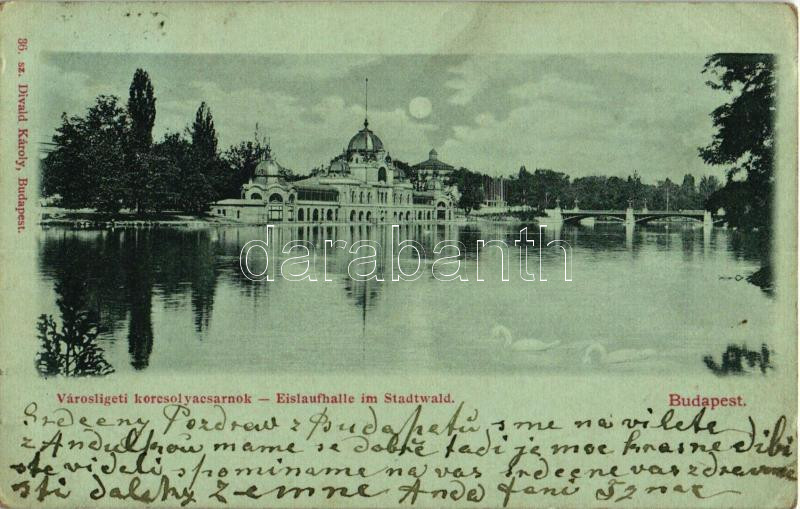 36. sz. Divald Károly, Budapest.
darabanth
Városligeti korcsolyacsarnok — Eislaufhalle im Stadtwald.
Budapest.
Srdečny Pozdrav z Budapeštů sme na vilete
z Andulkou mame se dobře tadi je moc krasne dibi
ste videli spominame na vas srdecne vas zdravime
sti dalsky Zemne Anda Fani Ignac